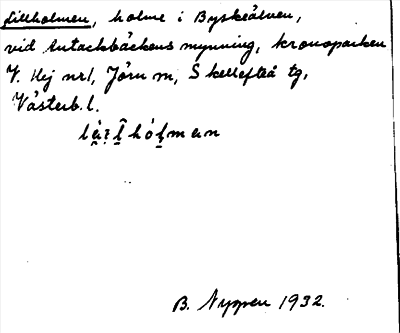 Lillholmen, holme i Byskeälven,
vid Antackbäckens mynning, kronoparken
V. Hej nr 1, Jörn sn, Skellefteå tg,
Västerb. l.
B. Nyqven 1932.